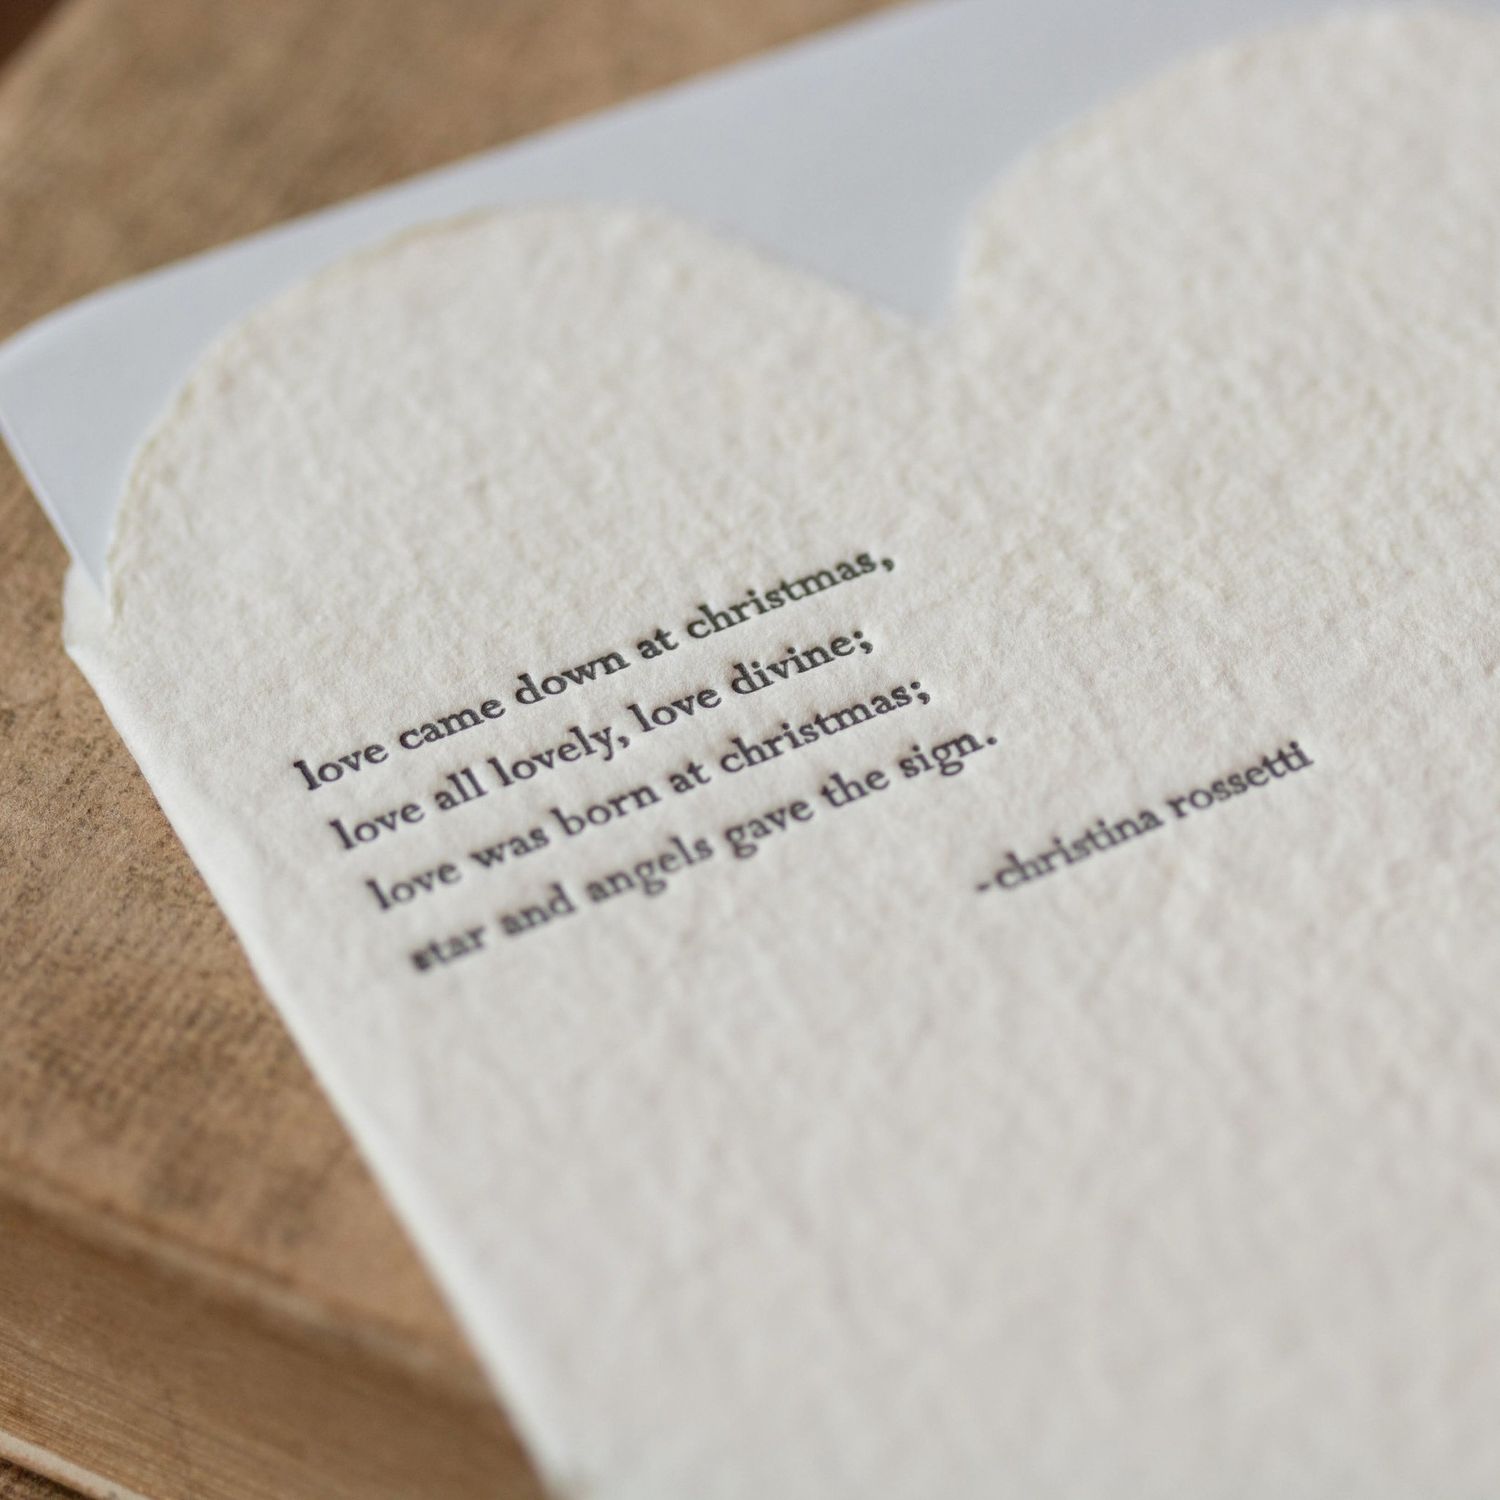 love came down at christmas,
love all lovely, love divine;
love was born at christmas;
star and angels gave the sign.
-christina rossetti